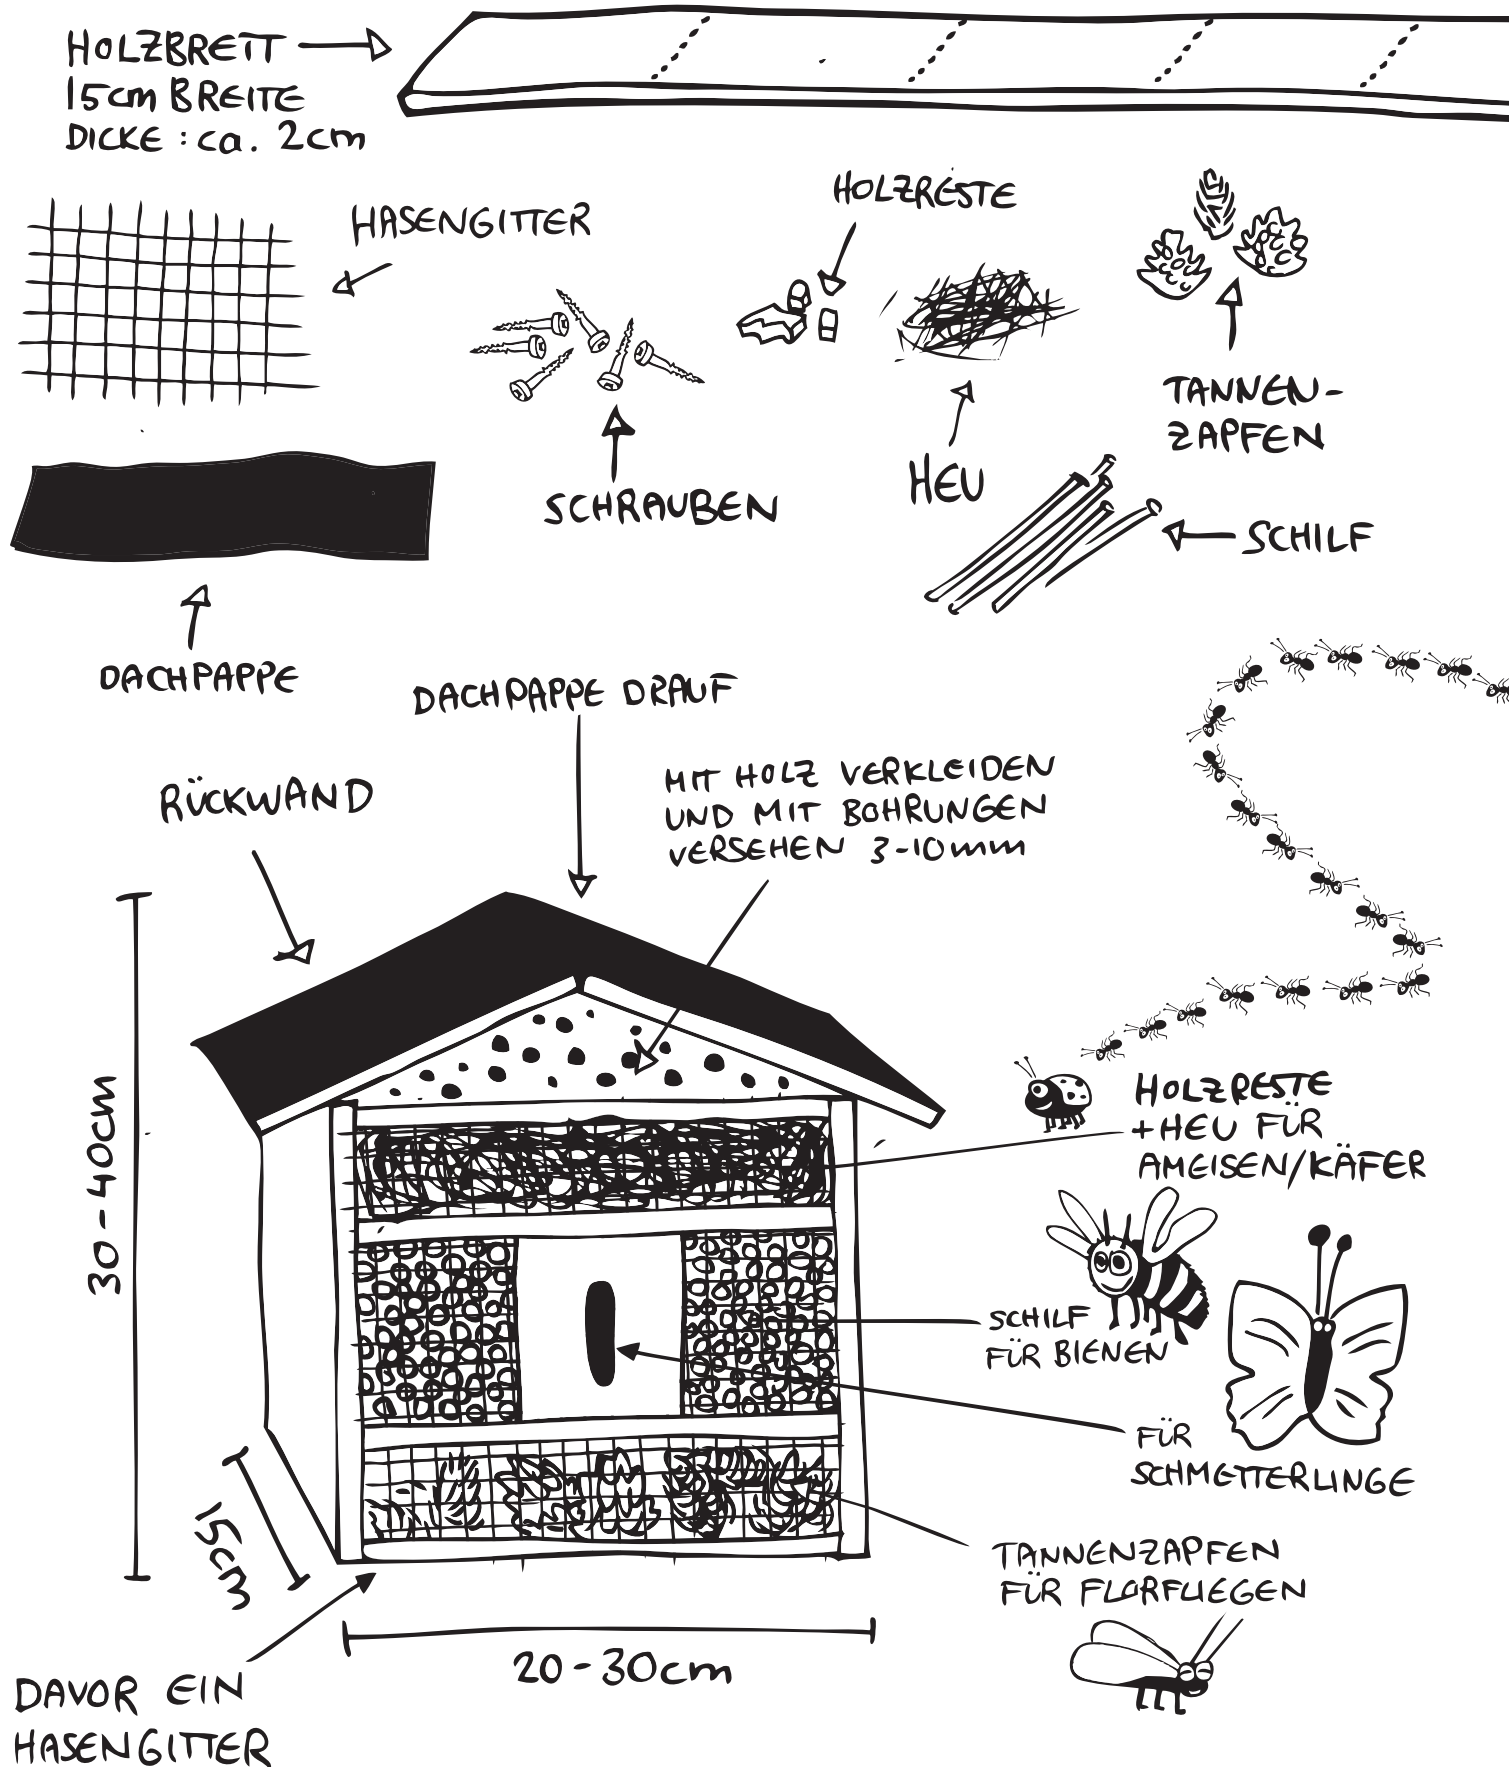 HOLZBRETT
15cm BREITE
DICKE : ca. 2cm
HOLZRESTE
HASENGITTER
TANNEN-
ZAPFEN
HEU
SCHRAUBEN
SCHILF
DACHPAPPE
DACHPAPPE DRAUF
RÜCKWAND
MIT HOLZ VERKLEIDEN
UND MIT BOHRUNGEN
VERSEHEN 3-10mm
30-40cm
HOLZRESTE
+HEU FÜR
AMEISEN/KÄFER
SCHILF
FÜR BIENEN
FÜR
SCHMETTERLINGE
15cm
TANNENZAPFEN
FÜR FLORFLIEGEN
20-30cm
DAVOR EIN
HASENGITTER